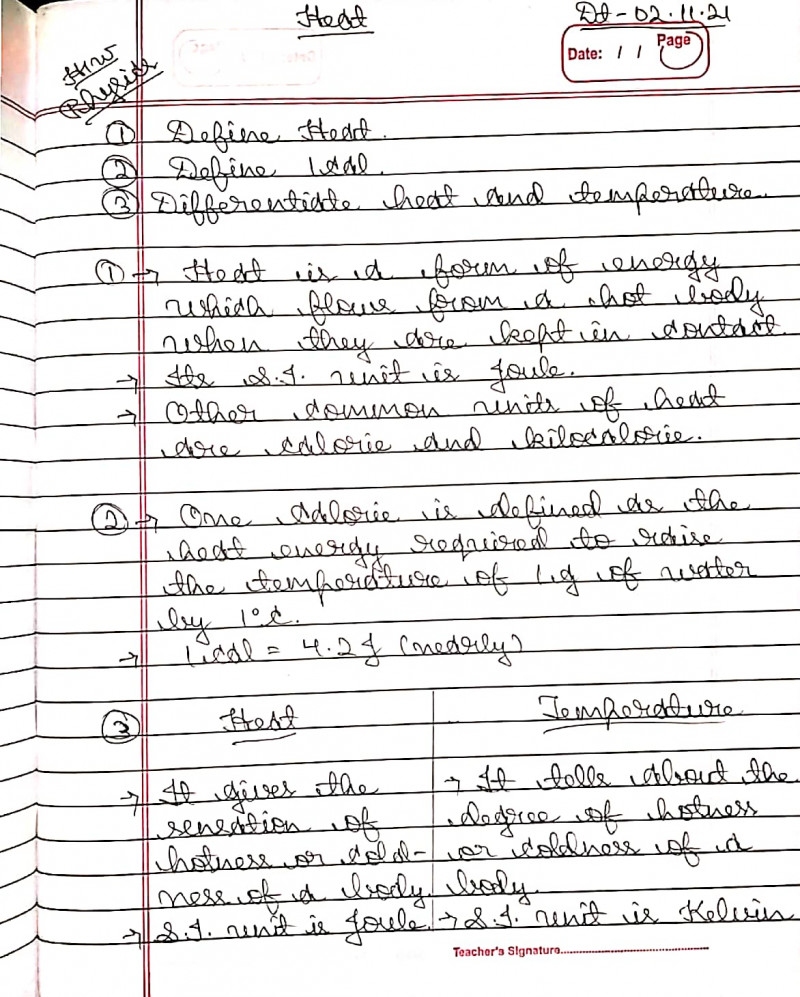 Heat
Dt - 02.11.21
Date: / / Page
H.W
Physics
① Define Heat.
② Define 1 cal.
③ Differentiate heat and temperature.
① → Heat is a form of energy
which flows from a hot body
when they are kept in contact.
→ Its S.I. unit is joule.
→ Other common units of heat
are calorie and kilocalorie.
② → One calorie is defined as the
heat energy required to raise
the temperature of 1 g of water
by 1°C.
→ 1 cal = 4.2 J (nearly)
③ Heat
→ It gives the
sensation of
hotness or cold-
ness of a body.
→ S.I. unit is joule.
Temperature
→ It tells about the
degree of hotness
or coldness of a
body.
→ S.I. unit is Kelvin
Teacher's Signature